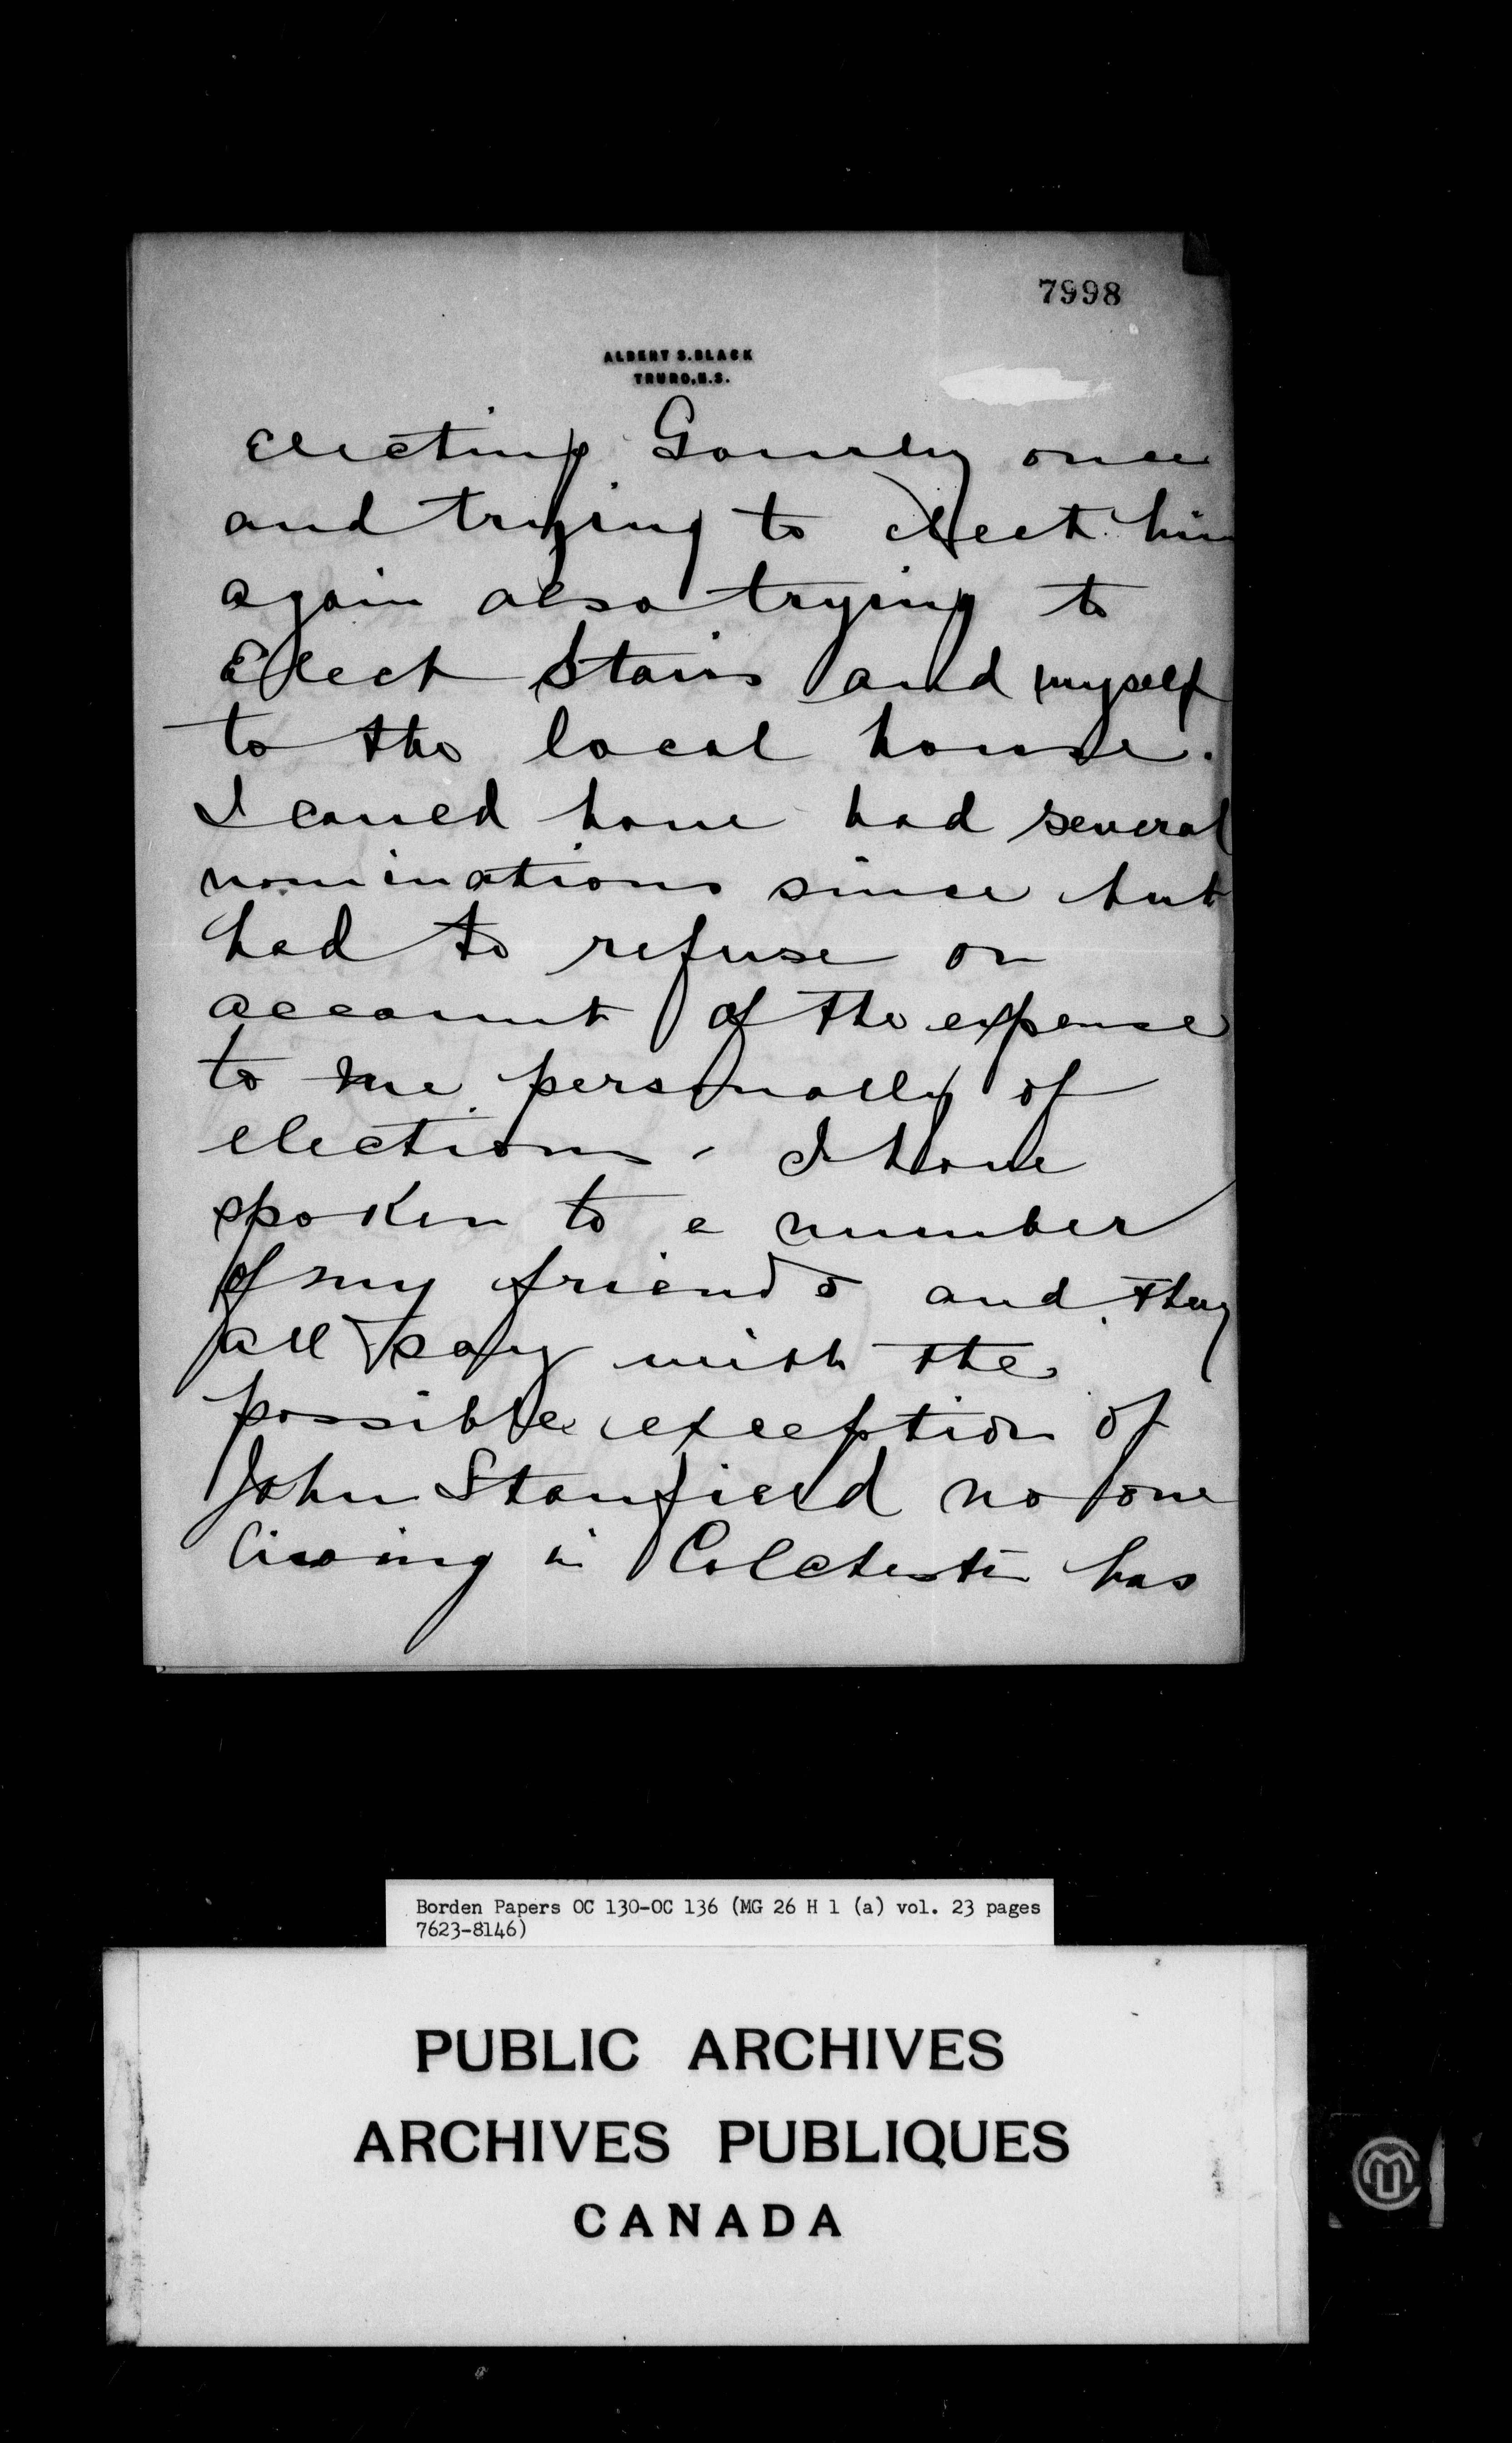 7998
ALBERT S. BLACK
TRURO, N.S.
electing Gourley once
and trying to elect him
again also trying to
Elect Stairs and myself
to the local house.
I could have had several
nominations since but
had to refuse on
account of the expense
to me personally of
elections. I have
spoken to a number
of my friends and they
all say with the
possible exception of
John Stanfield no one
living in Colchester has
Borden Papers OC 130-OC 136 (MG 26 H 1 (a) vol. 23 pages
7623-8146)
PUBLIC ARCHIVES
ARCHIVES PUBLIQUES
CANADA